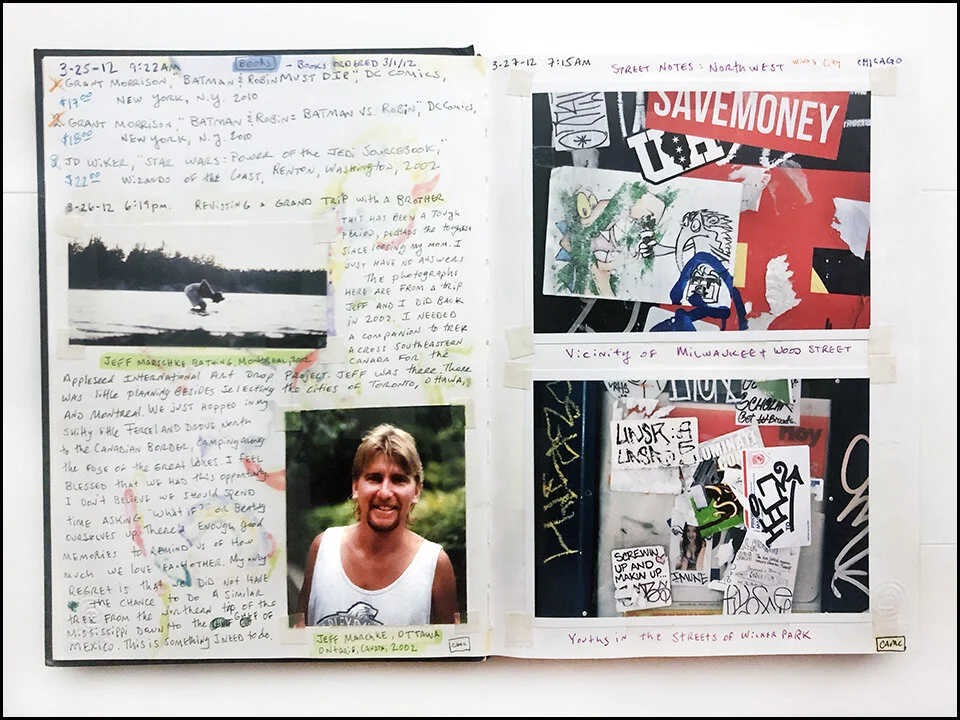 3-25-12 9:22AM BOOKS - BOOKS ORDERED 3/1/12
1. GRANT MORRISON, "BATMAN & ROBIN MUST DIE", DC COMICS,
$17.00 NEW YORK, N.Y. 2010
2. GRANT MORRISON, "BATMAN & ROBIN: BATMAN VS. ROBIN", DC COMICS,
$18.00 NEW YORK, N.Y. 2010
3. JD WIKER, "STAR WARS: POWER OF THE JEDI SOURCEBOOK,"
$22.00 WIZARDS OF THE COAST, RENTON, WASHINGTON, 2002
3-26-12 6:19PM. REVISTING A GRAND TRIP WITH A BROTHER
THIS HAS BEEN A TOUGH
PERIOD, PERHAPS THE TOUGHEST
SINCE LOOSING MY MOM. I
JUST HAVE NO ANSWERS.
The photographs
HERE ARE FROM A TRIP
JEFF AND I DID BACK
IN 2002. I NEEDED
A COMPANION TO TREK
ACROSS SOUTHEASTERN
CANADA FOR THE
JEFF MARSCHKE BATHING, MONTREAL 2002
APPLESEED INTERNATIONAL ART DROP PROJECT. JEFF WAS THERE. THERE
WAS LITTLE PLANNING BESIDES SELECTING THE CITIES OF TORONTO, OTTAWA,
AND MONTREAL. WE JUST HOPPED IN MY
SHITTY LITTLE TERCEL AND DROVE NORTH
TO THE CANADIAN BORDER, CAMPING ALONG
THE EDGE OF THE GREAT LAKES. I FEEL
BLESSED THAT WE HAD THIS OPPORTUNITY
I DON'T BELIEVE WE SHOULD SPEND
TIME ASKING "WHAT IF?" OR BEATING
OURSELVES UP. THERE'S ENOUGH GOOD
MEMORIES TO REMIND US OF HOW
MUCH WE LOVE EACHOTHER. MY only
REGRET IS THAT WE DID NOT HAVE
THE CHANCE TO DO A SIMILAR
TREK FROM THE NORTHERN TOP OF THE
MISSISSIPPI DOWN TO THE GULF OF
MEXICO. THIS IS SOMETHING I NEED TO DO.
JEFF MARCHKE, OTTAWA
ONTARIO, CANADA, 2002
CAMC
3-27-12 7:15AM STREET NOTES: NORTHWEST WINDY CITY CHICAGO
SAVEMONEY
VICINITY OF MILWAUKEE + WOOD STREET
Hoy
SCREWIN'
UP AND
MAKIN UP...
IMUNE
YOUTHS IN THE STREETS OF WICKER PARK
CAMC